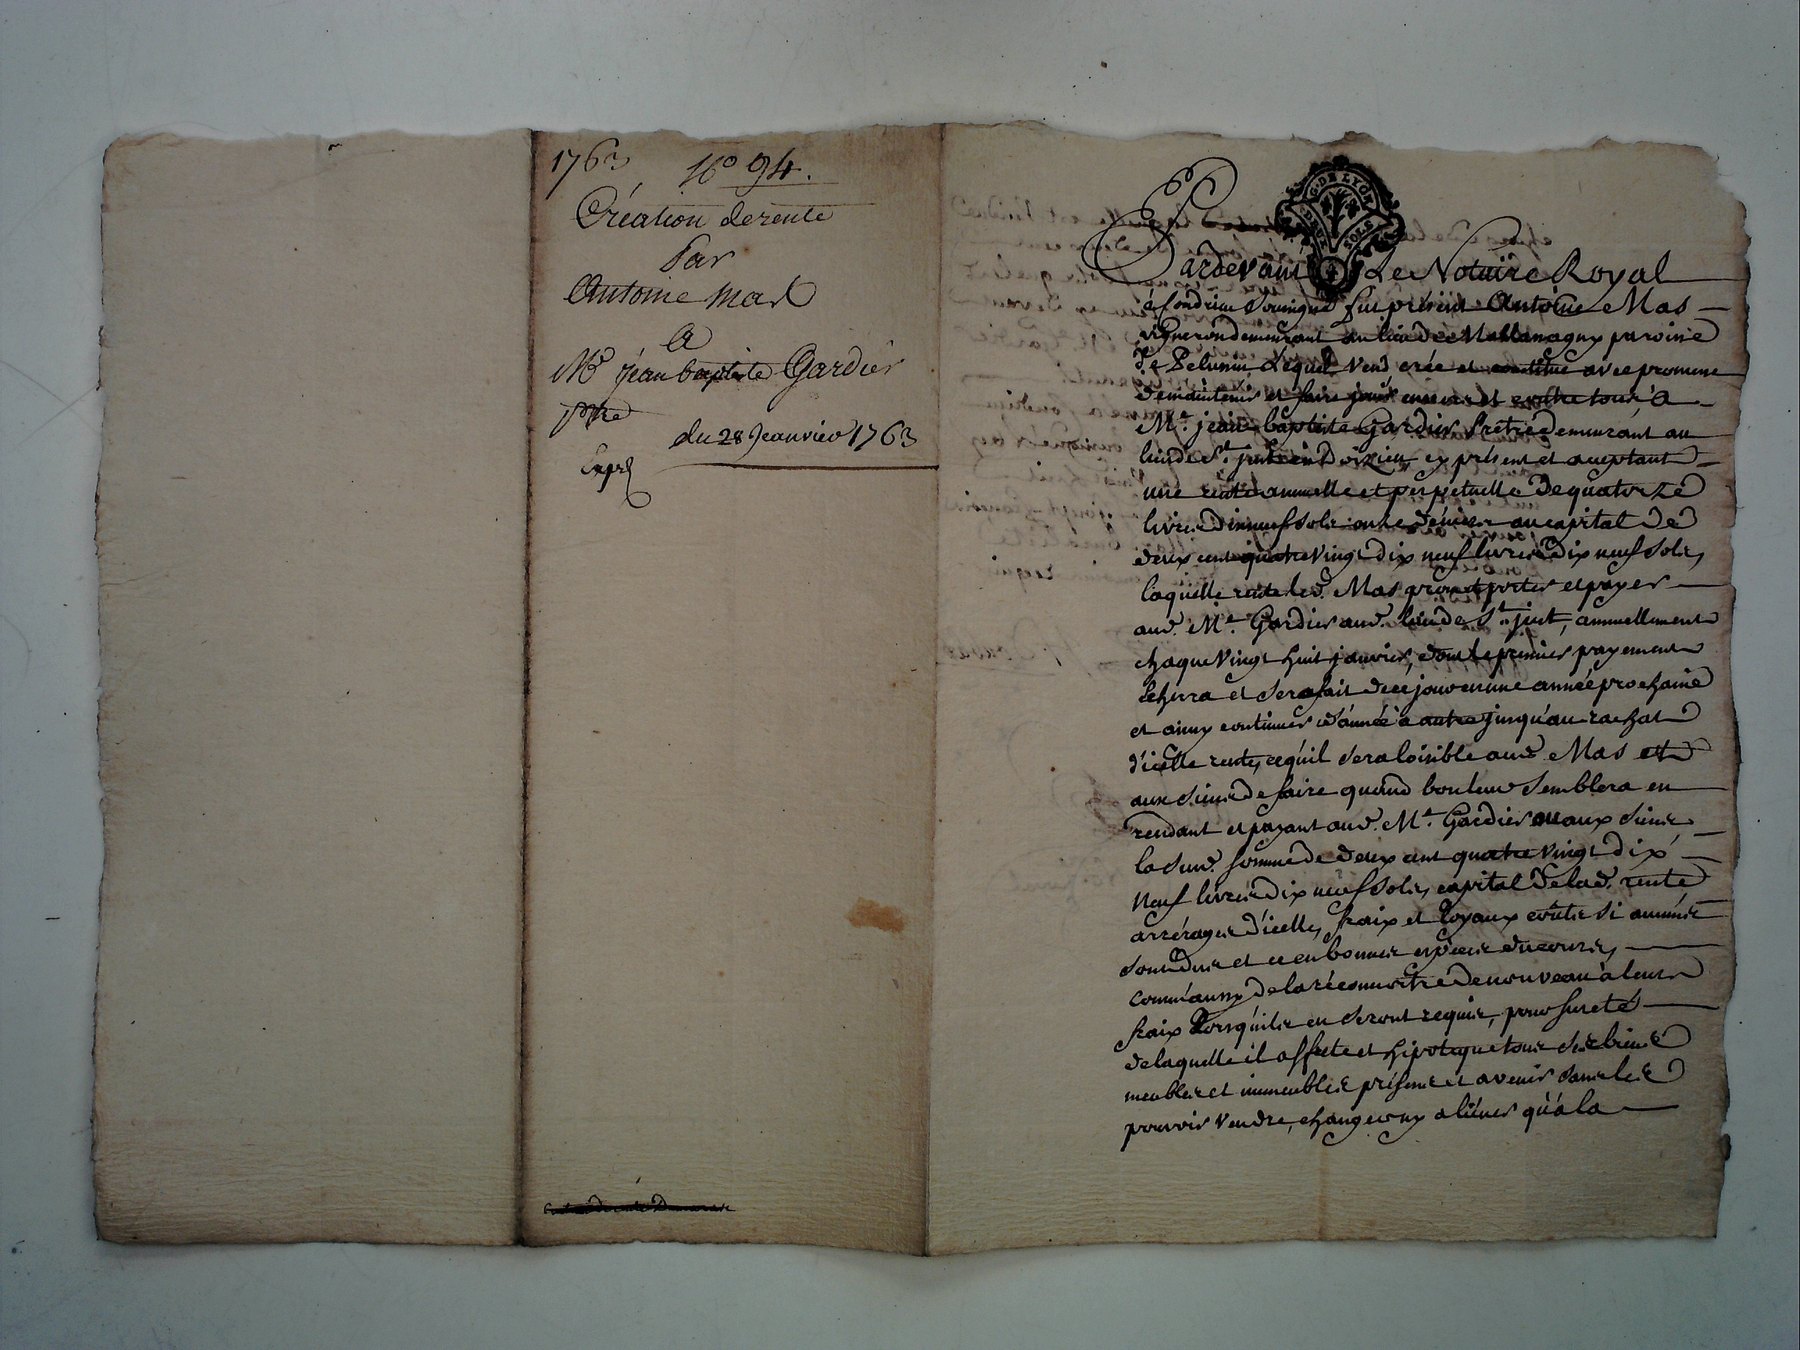 1763
N° 94.
Création de rente
Par
Antoine mas
A
Mr jean baptiste Gardier
ptre
du 28 Jeanvier 1763
Expéd
G. DE LYON
DEUX SOLS
Pardevant Le Notaire Royal
à Condrieu soussigné fut présent Antoine Mas
vigneron demeurant au lieu de paroisse
de Pelussin Lequel vend crée et constitue avec promesse
de maintenir et faire jouir envers et contre tous à
Me. jean baptiste Gardier Prêtre demeurant au
lieu de St. just en Doizieu cy présent et acceptant
une rente annuelle et perpetuelle de quatorze
livres dixneuf sols onze deniers au capital de
deux cent quatre vingt dix neuf livres dix neuf sols,
laquelle rente led. Mas promet porter et payer
aud. Me. Gardier aud. lieu de St. just, annuellement
chaque vingt huit janvier, dont le premier payement
echerra et sera fait de ce jour en une année prochaine
et ainsy continuer d'année à autre jusqu'au rachat
d'icelle rente, ce qu'il sera loisible aud. Mas et
aux siens de faire quand bon leur semblera en
rendant et payant aud. Me. Gardier ou aux siens
la sud. somme de deux cent quatre vingt dix
neuf livres dix neuf sols, capital de lad. rente
arrérages d'icelle, fraix et loyaux coûts si aucuns
sont dus et ce en bonnes espèces du cours,
comm'aussy de la réconnoitre de nouveau à leurs
fraix lorsqu'ils en seront requis, pour sureté
de laquelle il affecte et hipoteque tous ses biens
meubles et immeubles présens et avenir sans les
pouvoir vendre, echanger ny aliéner qu'à la